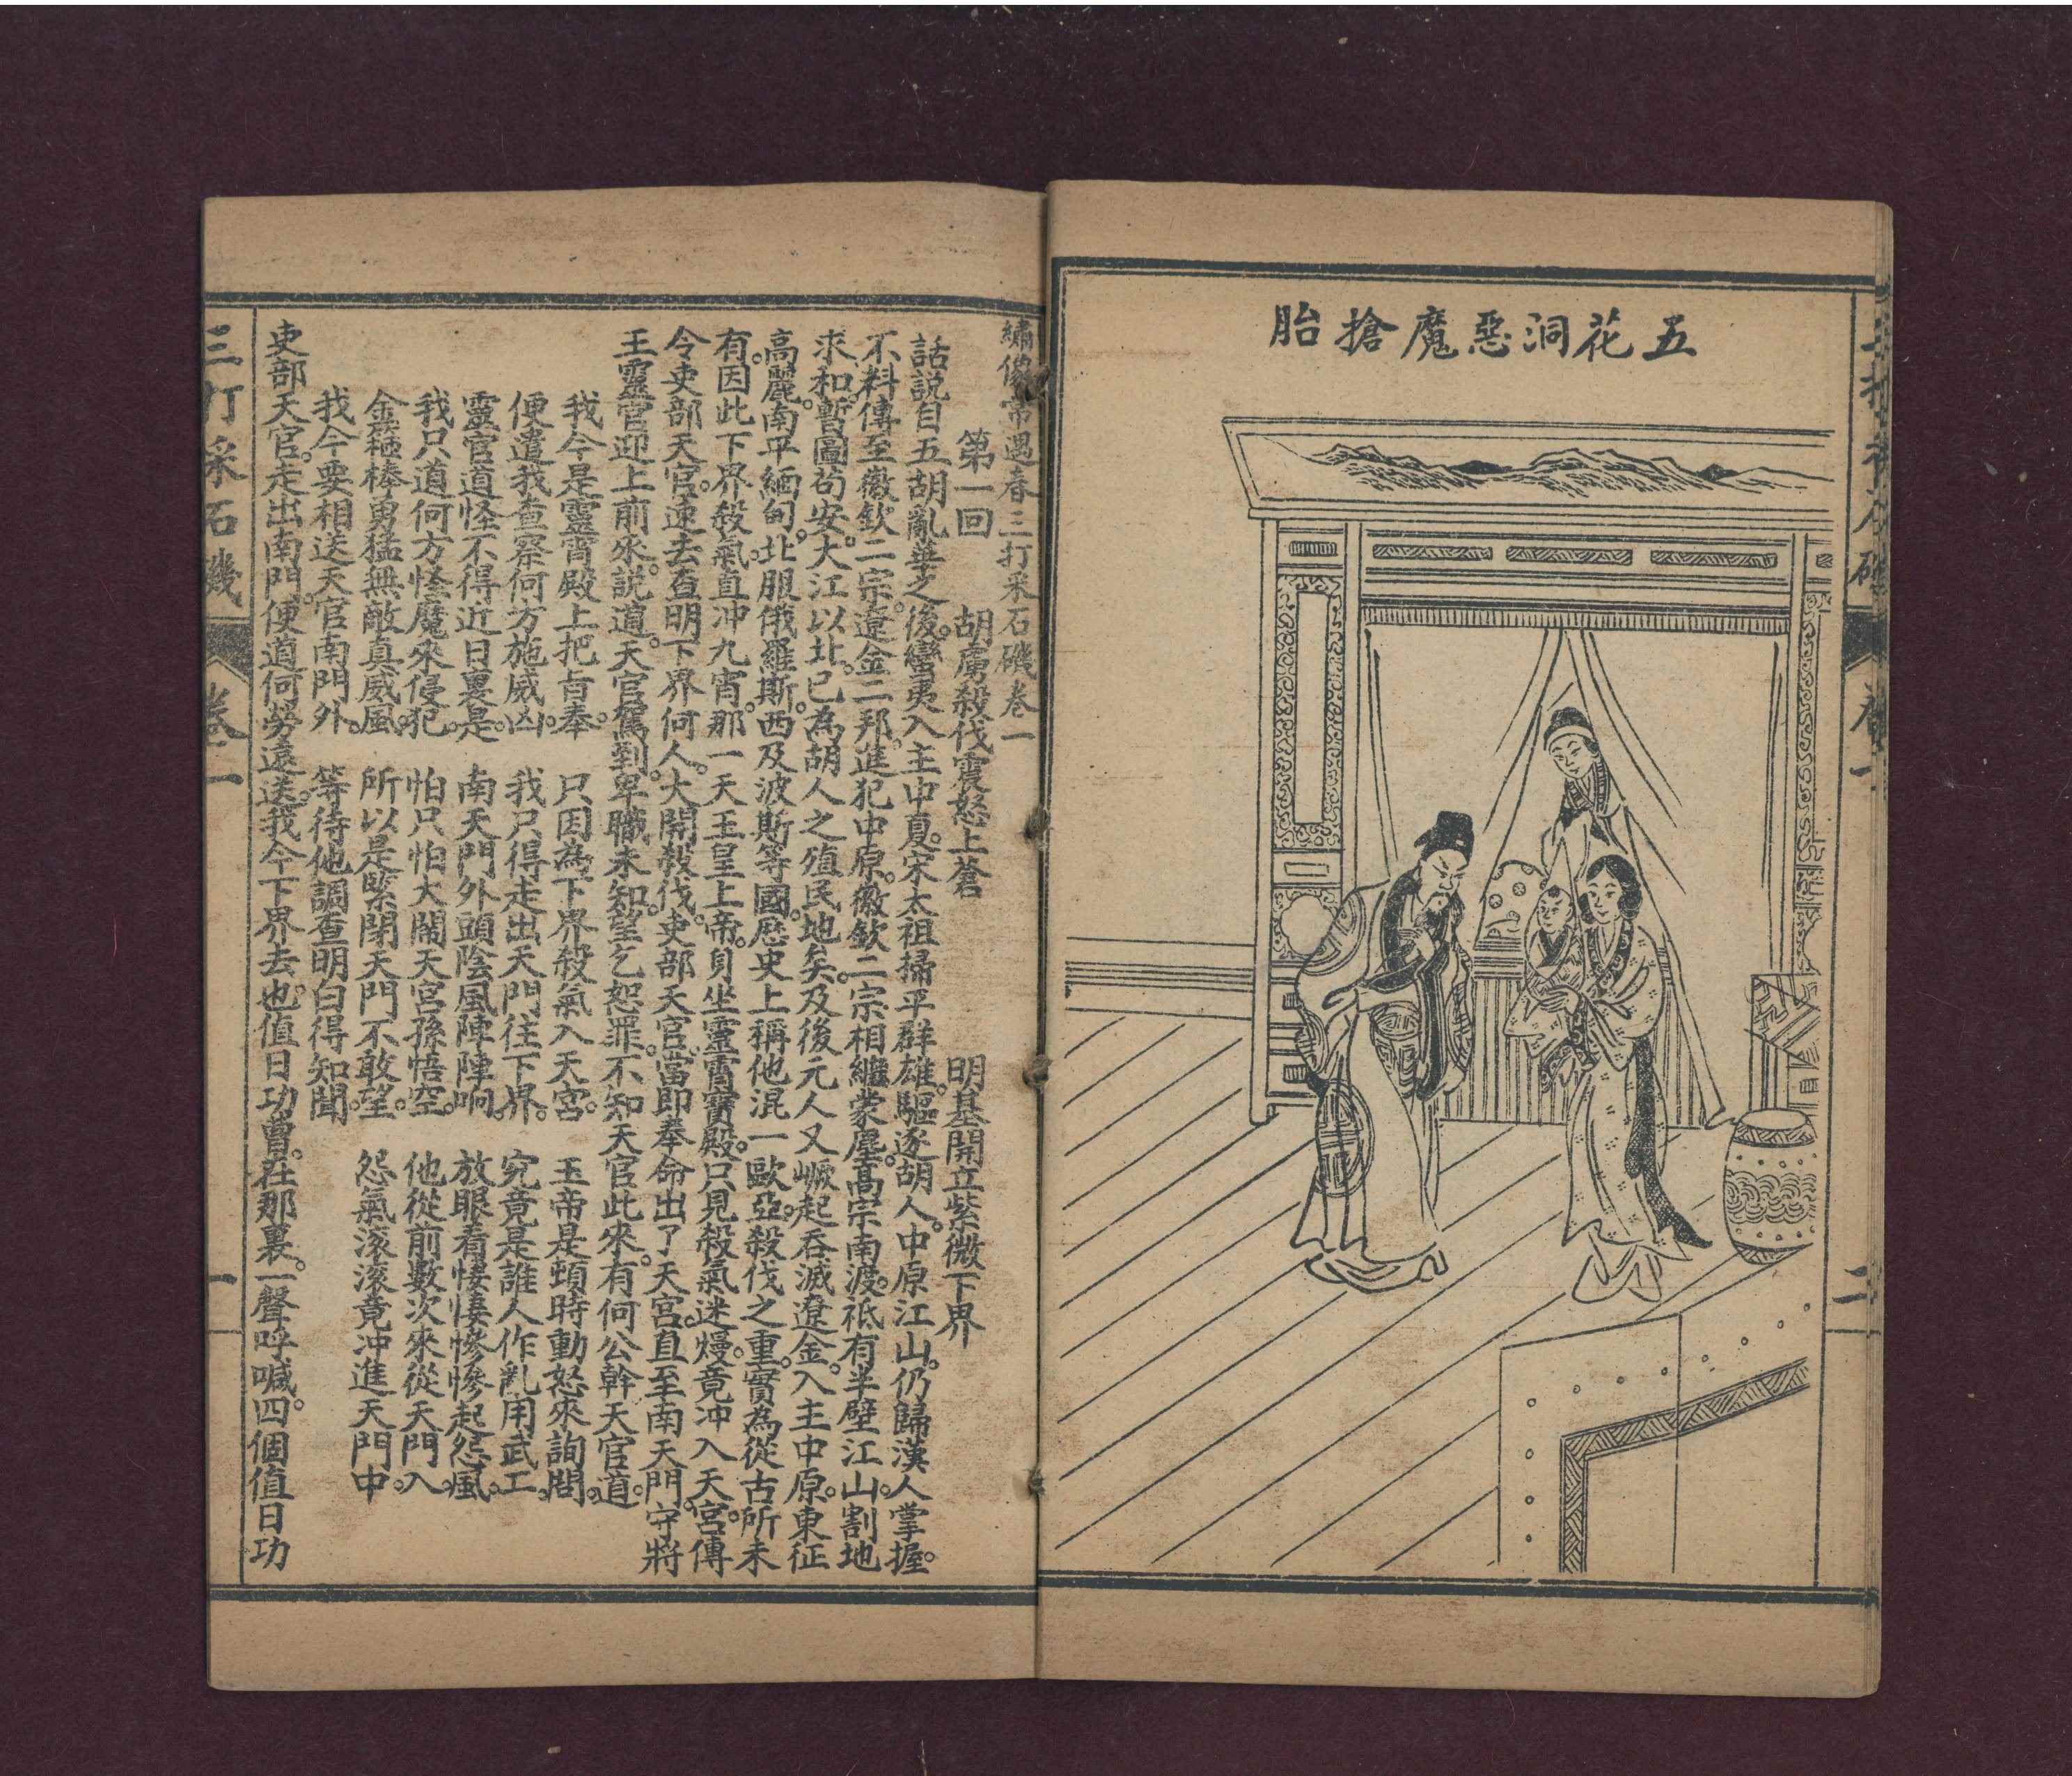 五花洞惡魔搶胎
卷一
二
繡像常遇春三打采石磯卷一
第一回 胡虜殺伐震怒上蒼 明基開立紫微下界
話説自五胡亂華之後。蠻夷入主中夏。宋太祖掃平群雄。驅逐胡人。中原江山。仍歸漢人掌握。
不料傳至徽欽二宗。遼金二邦。進犯中原。徽欽二宗相繼蒙塵。高宗南渡。祗有半壁江山。割地
求和。暫圖苟安。大江以北。已為胡人之殖民地矣。及後元人又崛起吞滅遼金。入主中原。東征
高麗。南平緬甸。北服俄羅斯。西及波斯等國。歷史上稱他混一歐亞。殺伐之重。實為從古所未
有。因此下界殺氣直冲九宵。那一天玉皇上帝。身坐靈霄寶殿。只見殺氣迷熳。竟冲入天宮。傳
令吏部天官。速去查明下界何人。大開殺伐。吏部天官。當即奉命出了天宮。直至南天門。守將
王靈官迎上前來。説道。天官駕到。卑職未知。望乞恕罪。不知天官此來。有何公幹天官道。
我今是靈霄殿上把旨奉。 只因為下界殺氣入天宮。 玉帝是頓時動怒來詢問。
便遣我查察何方施威凶。 我只得走出天門往下界。 究竟是誰人作亂用武工。
靈官道怪不得近日裏是。 南天門外頭陰風陣陣响。 放眼看悽悽慘慘起怨風。
我只道何方怪魔來侵犯。 怕只怕大鬧天宮孫悟空。 他從前數次來從天門入。
金箍棒勇猛無敵真威風。 所以是緊閉天門不敢望。 怨氣滚滚竟冲進天門中。
我今要相送天官南門外。 等待他調查明白得知聞。
吏部天官。走出南門。便道何勞遠送。我今下界去也。值日功曹。在那裏。一聲呼喊。四個值日功
三打采石磯
卷一
一